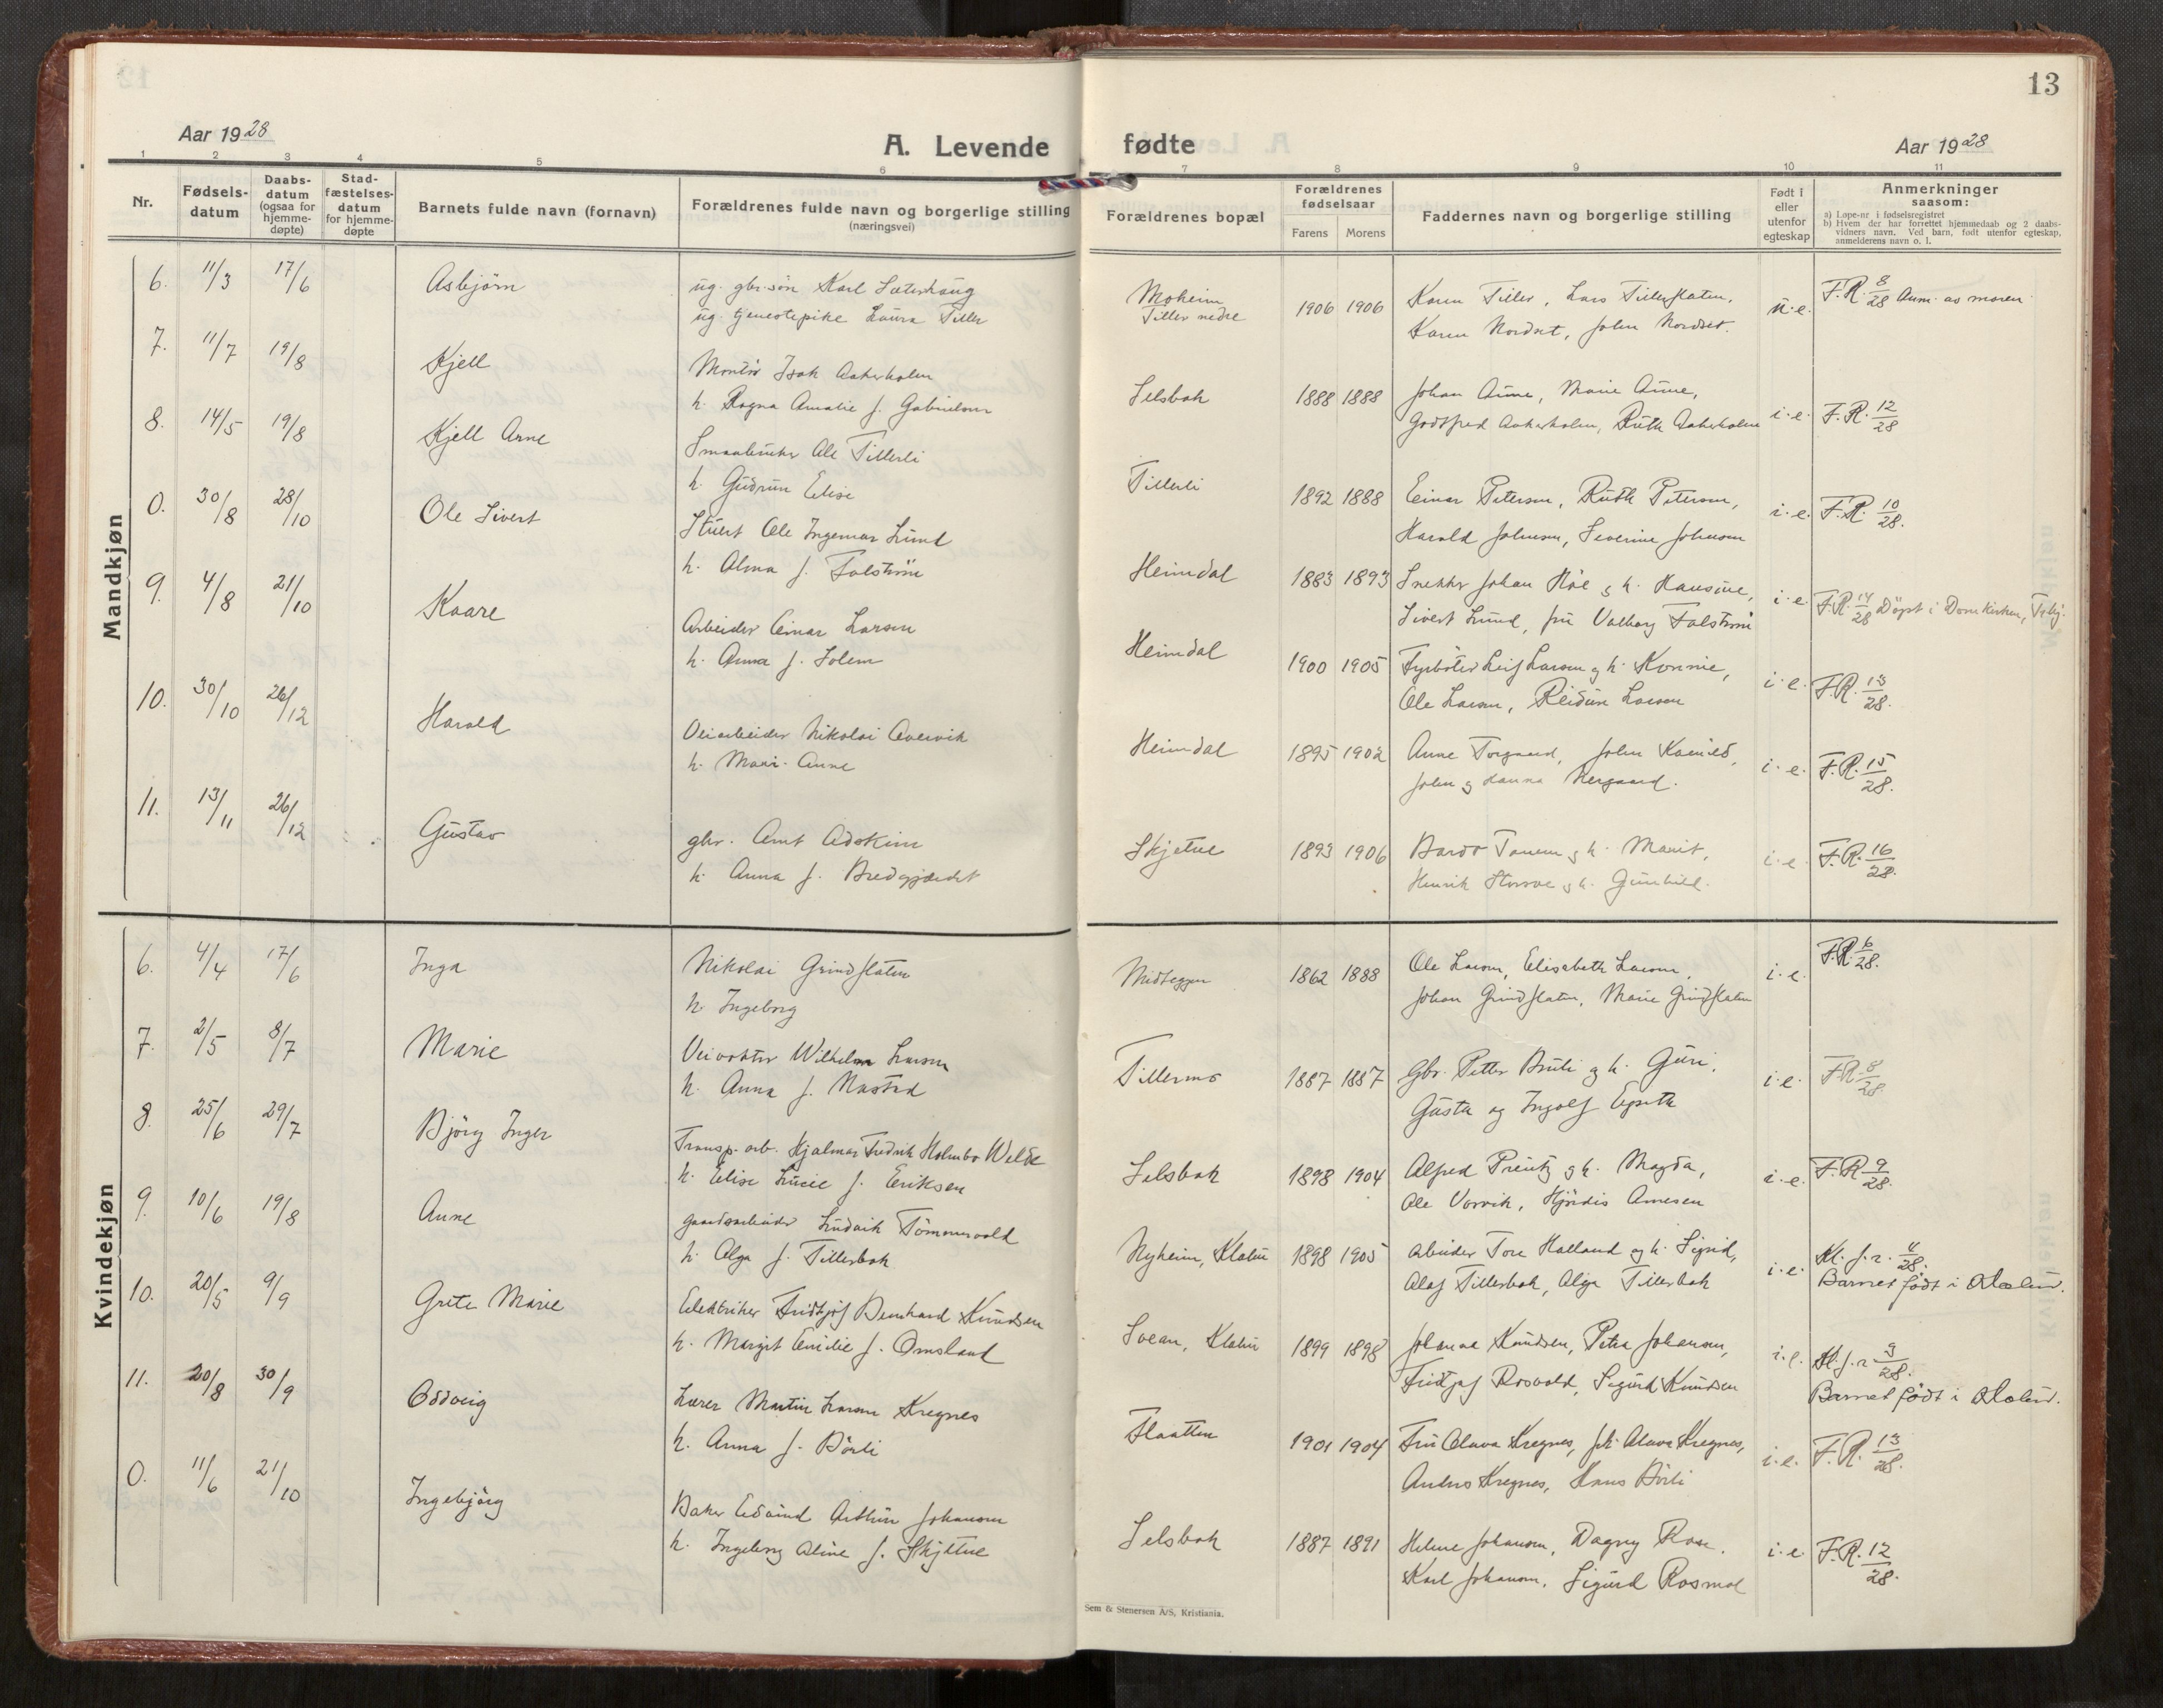 13
Aar 1928
A. Levende fødte
Aar 1928
1 2 3 4 5 6 7 8 9 10 11
Nr.
Fødsels-
datum
Daabs-
datum
(ogsaa for
hjemme-
døpte)
Stad-
fæstelses-
datum
for hjemme-
døpte
Barnets fulde navn (fornavn)
Forældrenes fulde navn og borgerlige stilling
(næringsvei)
Forældrenes bopæl
Forældrenes
fødselsaar
Farens Morens
Faddernes navn og borgerlige stilling
Født i
eller
utenfor
egteskap
Anmerkninger
saasom:
a) Løpe-nr i fødselsregistret
b) Hvem der har forrettet hjemmedaab og 2 daabs-
vidners navn. Ved barn, født utenfor egteskap,
anmelderens navn o. l.
Mandkjøn
6. 11/3 17/6 Asbjørn
ug. gbr.søn Karl Sæterhaug
ug. tjenestepike Laura Tiller
Moheim
Tiller nedre
1906 1906
Karen Tiller, Lars Tillerflaten,
Karen Nordset, John Nordset.
u.e.
F.R. 8/28 Anm. av moren
7. 11/7 19/8 Kjell
Montør Isak Aakerholm
h. Ragna Amalie f. Gabrielsen
Selsbak
1888 1888
Johan Aune, Marie Aune,
Godtfred Aakerholm, Ruth Aakerholm
i.e. F.R. 12/28
8. 14/5 19/8 Kjell Arne
Smaabruker Ole Tillerli
h. Gudrun Elise
Tillerli
1892 1888
Einar Petersen, Ruth Petersen,
Harald Johnsen, Severine Johnsen
i.e. F.R. 10/28.
0. 30/8 28/10 Ole Sivert
Stuert Ole Ingemar Lund
h. Alma f. Falstrøm
Heimdal
1883 1893
Snekker Johan Høe og h. Hansine,
Sivert Lund, fru Valborg Falstrøm
i.e. F.R. 14/28 Døpt i Domkirken, Trhj.
9. 4/8 21/10 Kaare
Arbeider Einar Larsen
h. Anna f. Solem
Heimdal
1900 1905
Fyrbøter Leif Larsen og h.
Ole Larsen, Reidun Larsen
i.e. F.R. 13/28.
10. 30/10 26/12 Harald
Veiarbeider Nikolai
h. Anne
Heimdal
1895 1902
Anne Torgaard, John
John og Hanna Nergaard.
i.e. F.R. 15/28.
11. 13/11 26/12 Gustav
gbr. Arnt
h. Anna f.
Skjetne
1893 1906
Bardo Tanem og h. Marit,
Henrik og h. Gunhild.
i.e. F.R. 16/28.
Kvindekjøn
6. 4/4 17/6 Inga
Nikolai Grindflaten
h. Ingeborg
Midteggen
1862 1888
Ole Larsen, Elisabeth Larsen,
Johan Grindflaten, Marie Grindflaten
i.e. F.R. 6/28.
7. 2/5 8/7 Marie
Veivokter Wilhelm Larsen
h. Anna f. Mastad
Tillermo
1887 1887
Gbr. Petter Bruli og h. Guri,
Gusta og Ingolf
i.e. F.R. 8/28.
8. 25/6 29/7 Bjørg Inger
Transp. arb. Hjalmar Fredrik Holmbo Welde
h. Elise Lucie f. Eriksen
Selsbak
1898 1904
Alfred Preutz og h. Magda,
Ole Vorvik, Hjørdis Arnesen
i.e. F.R. 9/28.
9. 10/6 19/8 Anne
Gaardsarbeider Ludvik Tømmervold
h. Olga f. Tillerbak
Nyheim, Klæbu
1898 1905
Arbeider Tore Halland og h. Sigrid,
Olaf Tillerbak, Olga Tillerbak
i.e. Kl. f. r. 4/28.
Barnet født i Klæbu.
10. 20/5 9/9 Grete Marie
Elektriker Fridtjof Bernhard Knudsen
h. Margit Emilie f. Omsland
Svean, Klæbu
1899 1898
Johanna Knudsen, Petra Johansen,
Fridtjof Rosvold, Sigurd Knudsen
i.e. Kl. f. r. 3/28.
Barnet født i Klæbu.
11. 20/8 30/9 Oddveig
Lærer Martin Larsen Kregnes
h. Anna f. Børli
Flaatten
1901 1904
Fru Olava Kregnes, frk. Olava Kregnes,
Anders Kregnes, Hans Børli
i.e. F.R. 13/28.
0. 11/6 21/10 Ingebjørg
Baker Edvind Arthur Johansen
h. Ingeborg Oline f. Skjetne
Selsbak
1887 1891
Helene Johansen, Dagny Rose.
Karl Johansen, Sigurd Rosmol
i.e. F.R. 12/28.
Sem & Stenersen A/S, Kristiania.